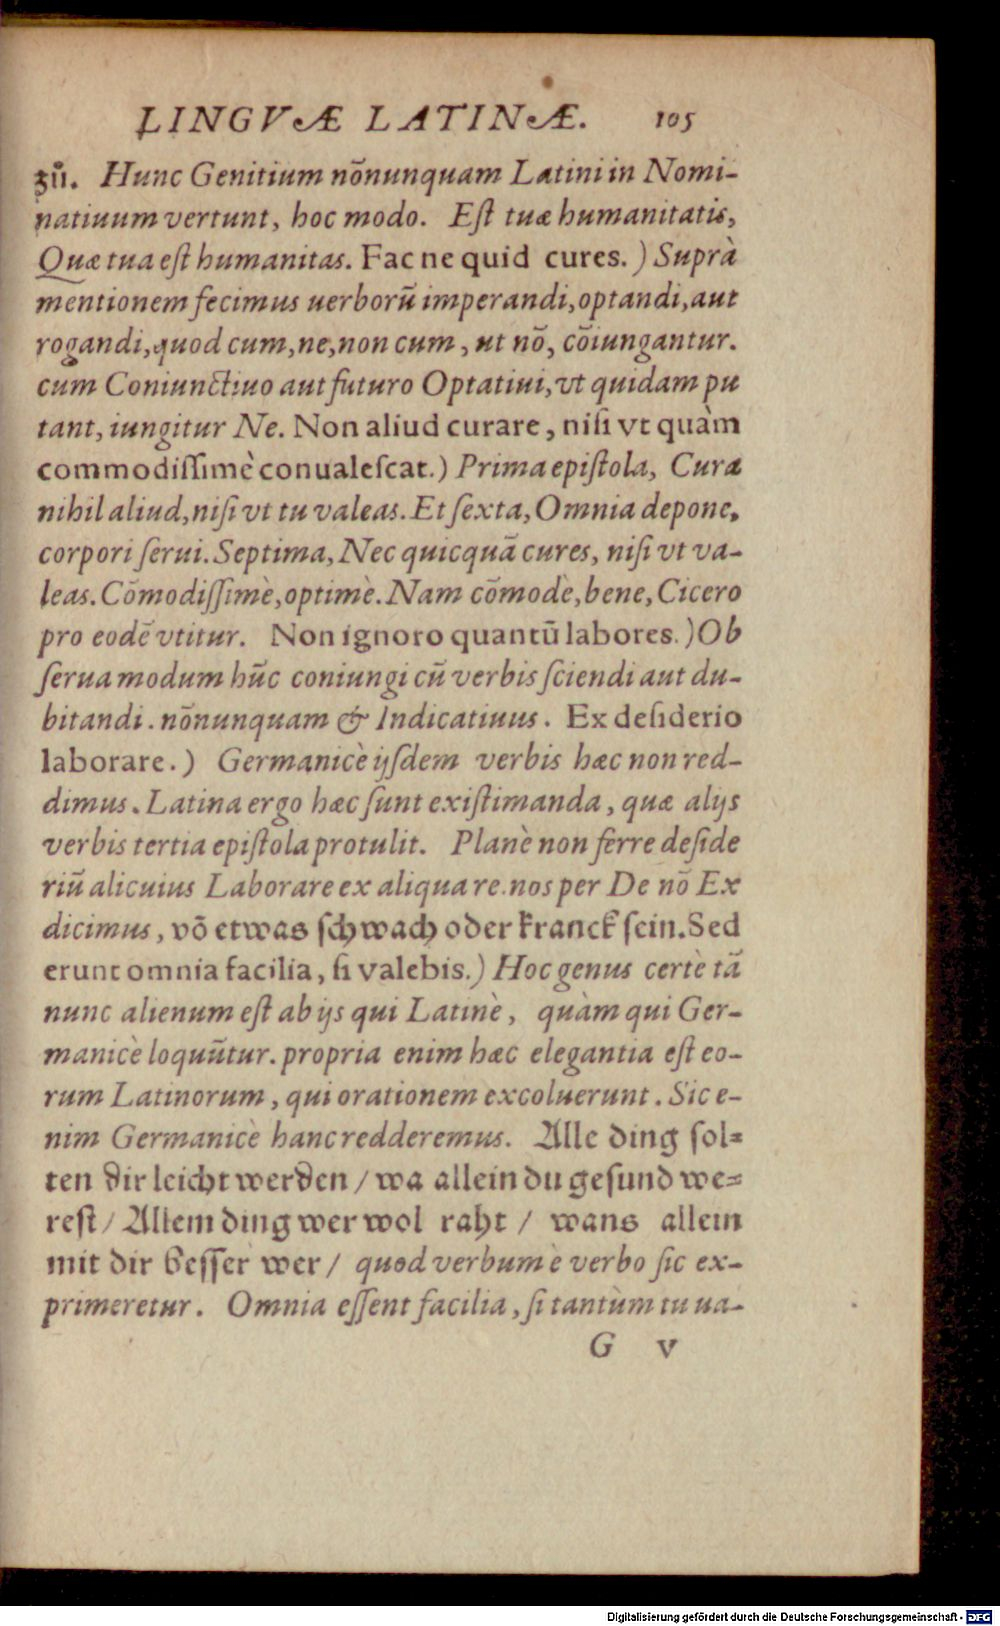 LINGVÆ LATINÆ. 105
zů. Hunc Genitium nõnunquam Latini in Nomi-
natiuum vertunt, hoc modo. Eſt tuæ humanitatis,
Quæ tua eſt humanitas. Fac ne quid cures.) Suprà
mentionem fecimus uerborũ imperandi, optandi, aut
rogandi, quod cum, ne, non cum, ut nõ, cõiungantur.
cum Coniunctiuo aut futuro Optatiui, vt quidam pu
tant, iungitur Ne. Non aliud curare, niſi vt quàm
commodiſſimè conualeſcat.) Prima epiſtola, Cura
nihil aliud, niſi vt tu valeas. Et ſexta, Omnia depone,
corpori ſerui. Septima, Nec quicquã cures, niſi vt va-
leas. Cõmodiſſimè, optimè. Nam cõmodè, bene, Cicero
pro eodẽ vtitur. Non ignoro quantũ labores.) Ob
ſerua modum hũc coniungi cũ verbis ſciendi aut du-
bitandi. nõnunquam & Indicatiuus. Ex deſiderio
laborare.) Germanicè ijſdem verbis hæc non red-
dimus. Latina ergo hæc ſunt exiſtimanda, quæ alijs
verbis tertia epiſtola protulit. Planè non ferre deſide
riũ alicuius Laborare ex aliqua re. nos per De nõ Ex
dicimus, võ etwas ſchwach oder kranck ſein. Sed
erunt omnia facilia, ſi valebis.) Hoc genus certè tã
nunc alienum eſt ab ijs qui Latinè, quàm qui Ger-
manicè loquũtur. propria enim hæc elegantia eſt eo-
rum Latinorum, qui orationem excoluerunt. Sic e-
nim Germanicè hanc redderemus. Alle ding ſol⸗
ten dir leicht werden / wa allein du geſund we⸗
reſt / Allem ding wer wol raht / wans allein
mit dir beſſer wer / quod verbum è verbo ſic ex-
primeretur. Omnia eſſent facilia, ſi tantùm tu ua-
G v
Digitalisierung gefördert durch die Deutsche Forschungsgemeinschaft - DFG